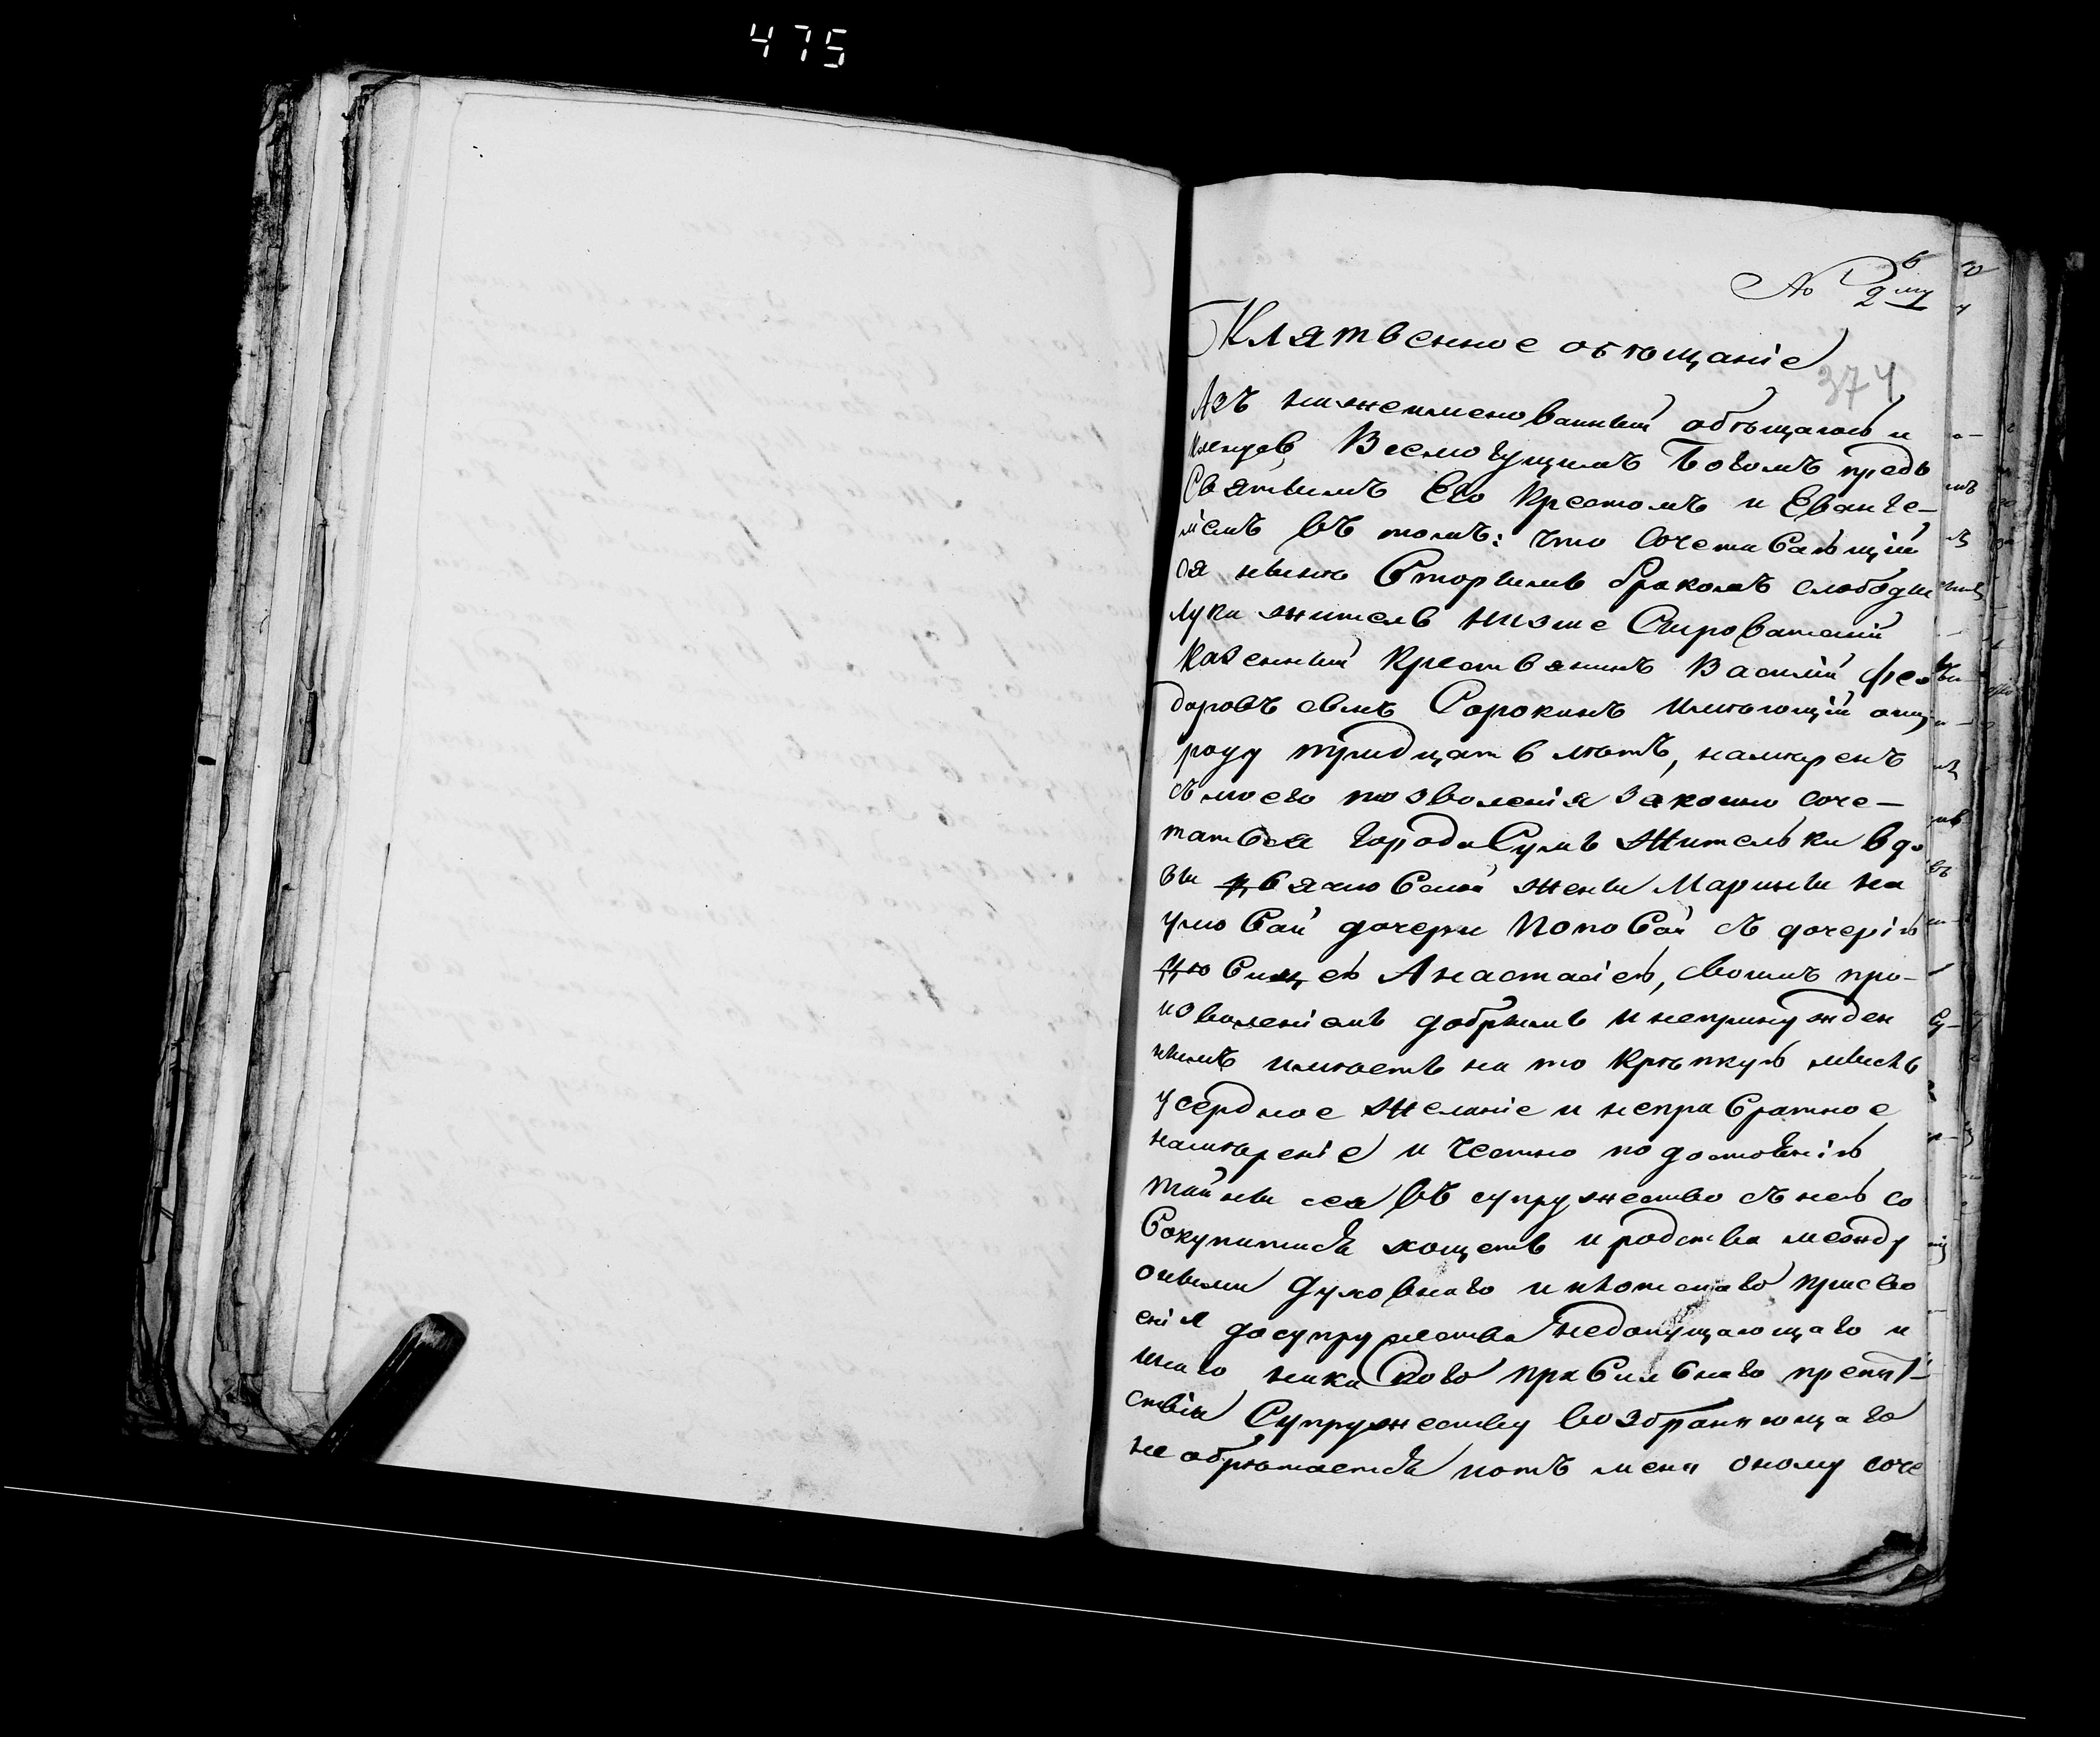 475
No 2му
Клятвенное обѣщаніе
374
Азъ нижеименованный обѣщаюсь и
кленусь Всемогущимъ Богомъ предъ
Святымъ Его Крестомъ и Еванге-
ліемъ въ томъ: что сочетавающій
ся нынѣ вторымъ бракомъ слободы
луки житель
Казенный Крестьянинъ Василій Фео
доровъ сынъ Сорокинъ имѣющій отъ
роду тридцать лѣтъ, намѣренъ
съ моего позволенія законно соче-
таться города Сумъ жительки вдо
вы жены Марины На
умовой дочери Поповой съ дочерію
Анастасіею, своимъ про-
изволеніемъ добрымъ и непринужден
нымъ имѣетъ на то крѣпкую мысль
усердное желаніе и неправратное
намѣреніе и честно по достоянію
тайны сея въ супружество съ нею со
вокупитись хощетъ и родства между
оными духовнаго и плотскаго присво
енія до супружества недопущающаго и
инаго никаковова правильнаго препят-
ствія Супружеству возбраняющаго
не обрѣтается и отъ меня оному соче